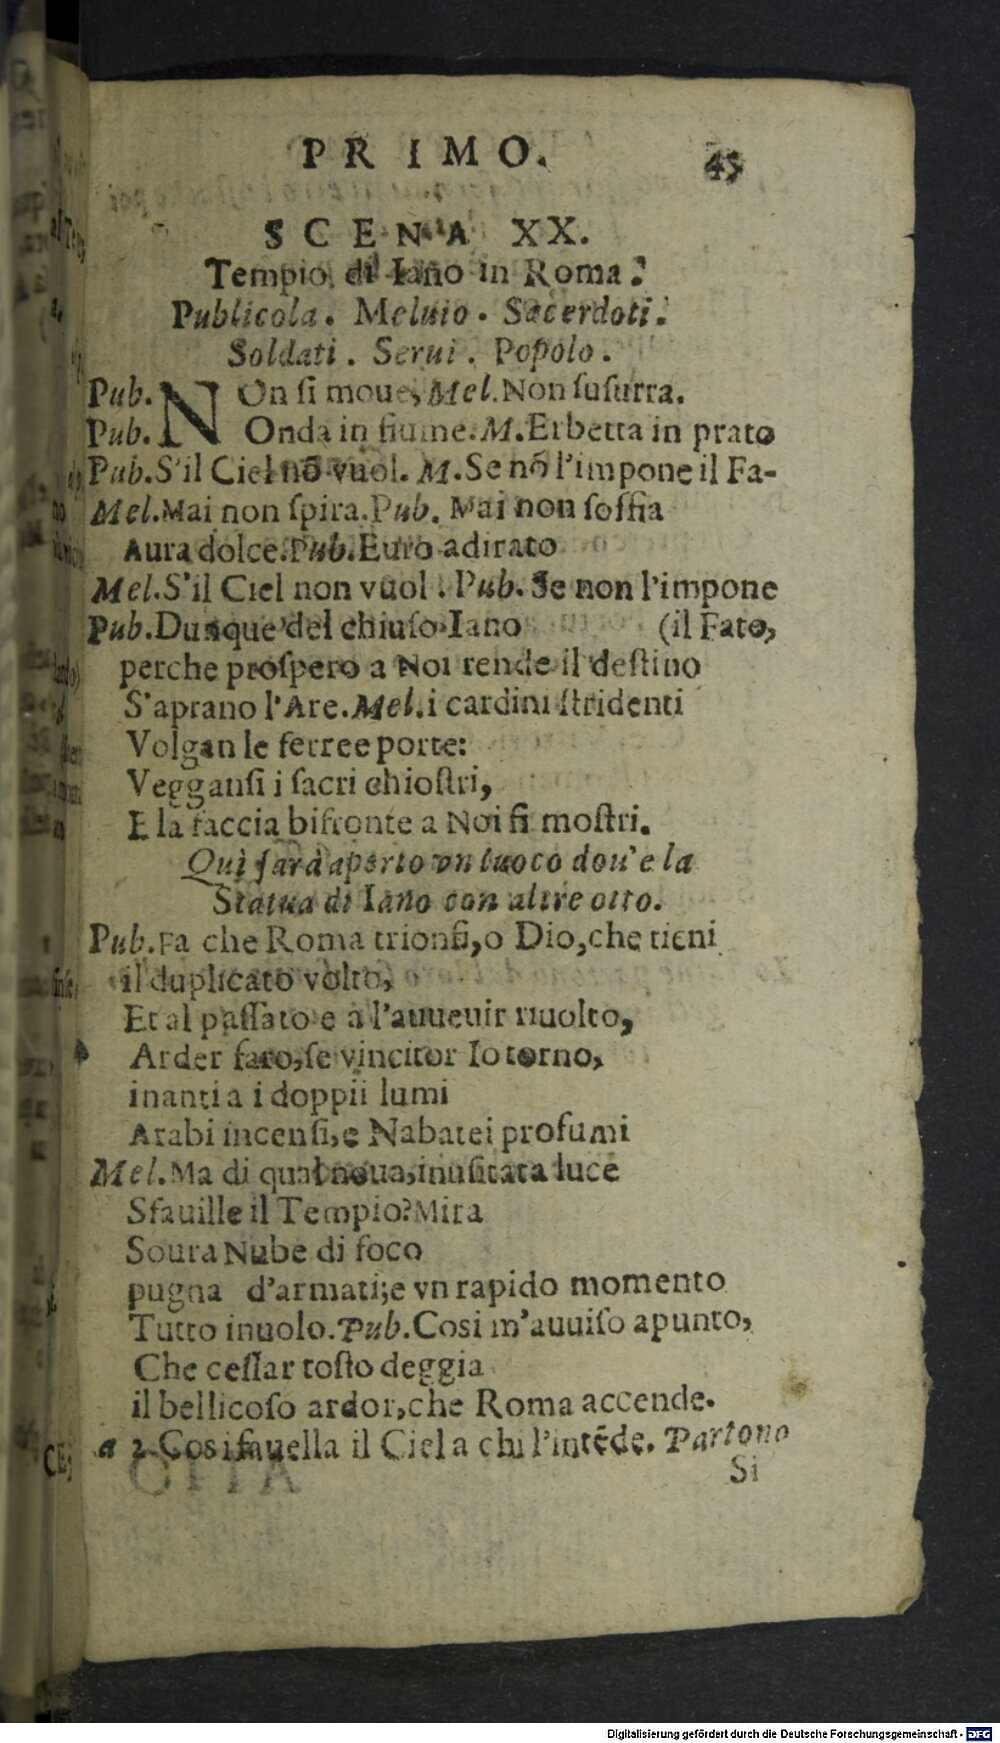 PRIMO. 45
SCENA XX.
Tempio di Iano in Roma.
Publicola. Meluio. Sacerdoti.
Soldati. Serui. Popolo.
Pub. NOn ſi moue, Mel. Non ſuſurra.
Pub. Onda in fiume. M. Erbetta in prato
Pub. S'il Ciel nõ vuol. M. Se nõ l'impone il Fa-
Mel. Mai non ſpira. Pub. Mai non ſoffia
Aura dolce. Pub. Euro adirato
Mel. S'il Ciel non vuol. Pub. Se non l'impone
Pub. Dunque del chiuſo Iano (il Fato,
perche proſpero a Noi rende il deſtino
S'aprano l'Are. Mel. i cardini ſtridenti
Volgan le ferree porte:
Vegganſi i ſacri chioſtri,
E la faccia bifronte a Noi ſi moſtri.
Qui ſarà aperto vn luoco dou'e la
Statua di Iano con altre otto.
Pub. Fa che Roma trionfi, o Dio, che tieni
il duplicato volto,
Et al paſſato e a l'auuenir riuolto,
Arder faro, ſe vincitor Io torno,
inanti a i doppii lumi
Arabi incenſi, e Nabatei profumi
Mel. Ma di qual noua, inuſitata luce
Sfauille il Tempio? Mira
Soura Nube di foco
pugna d'armati; e vn rapido momento
Tutto inuolo. Pub. Cosi m'auuiſo apunto,
Che ceſſar toſto deggia
il bellicoſo ardor, che Roma accende.
a 2. Cosi fauella il Ciel a chi l'intẽde. Partono
Si
Digitalisierung gefördert durch die Deutsche Forschungsgemeinschaft - DFG